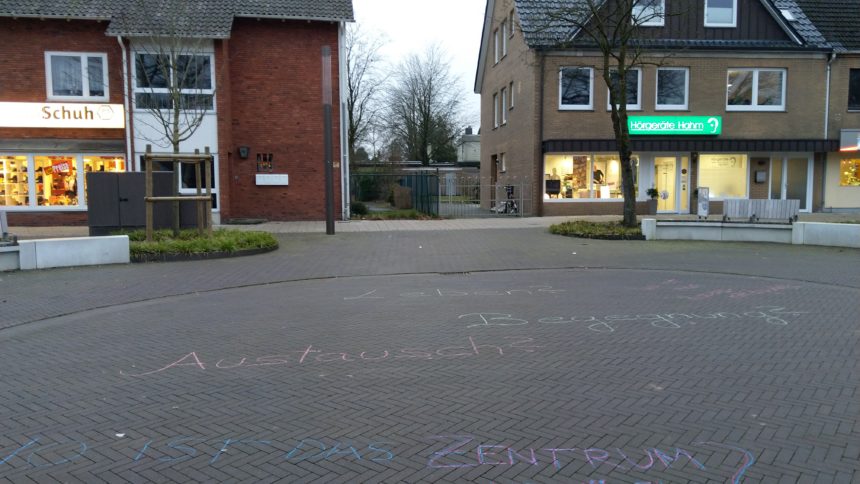 Schuh
Hörgeräte Hahm
Leben?
Begegnung?
Austausch?
IST DAS ZENTRUM